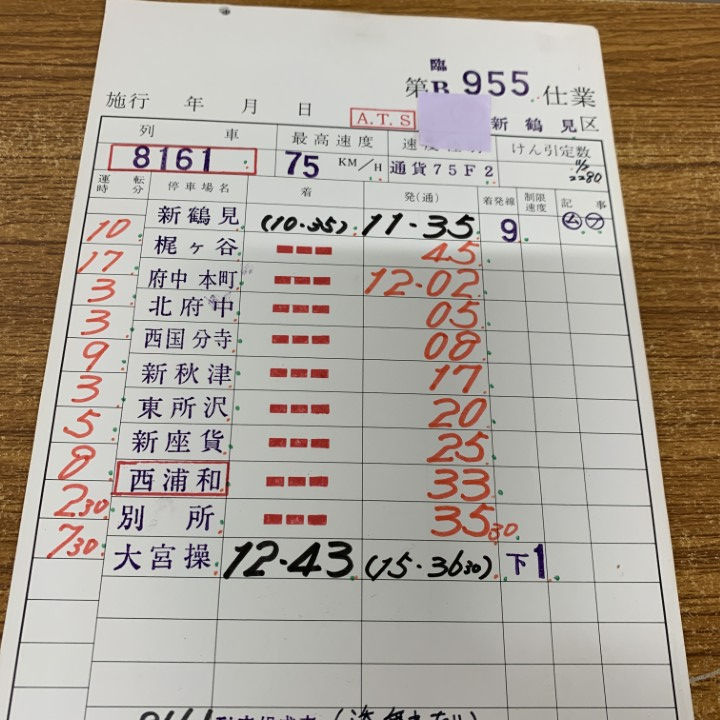 臨
第B 955 仕業
施行 年 月 日
A.T.S 新鶴見区
列車 最高速度 けん引定数
8161 75 KM/H 通貨75F2 2280
運転時分 停車場名 着 発(通) 着発線 制限速度 記事
新鶴見 (10・35) 11-35 9 ム フ
10
梶ヶ谷 45
17
府中本町 12-02
3
北府中 05
3
西国分寺 08
9
新秋津 17
3
東所沢 20
5
新座貨 25
8
西浦和 33
2 30
別所 35 30
7 30
大宮操 12-43 (15・36 30) 下1